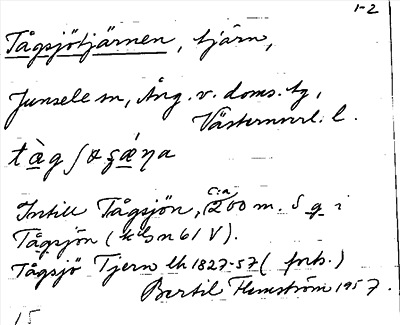 1-2
Tågsjötjärnen, tjärn,
Junsele sn, Ång. v. doms. tg,
Västernorrl. l.
Intill Tågsjön, c:a 200 m. S g i
Tågsjön (kbn 61 V).
Tågsjö Tjern lk 1827-57 ( forts.)
Bertil Flemström 1957.
15